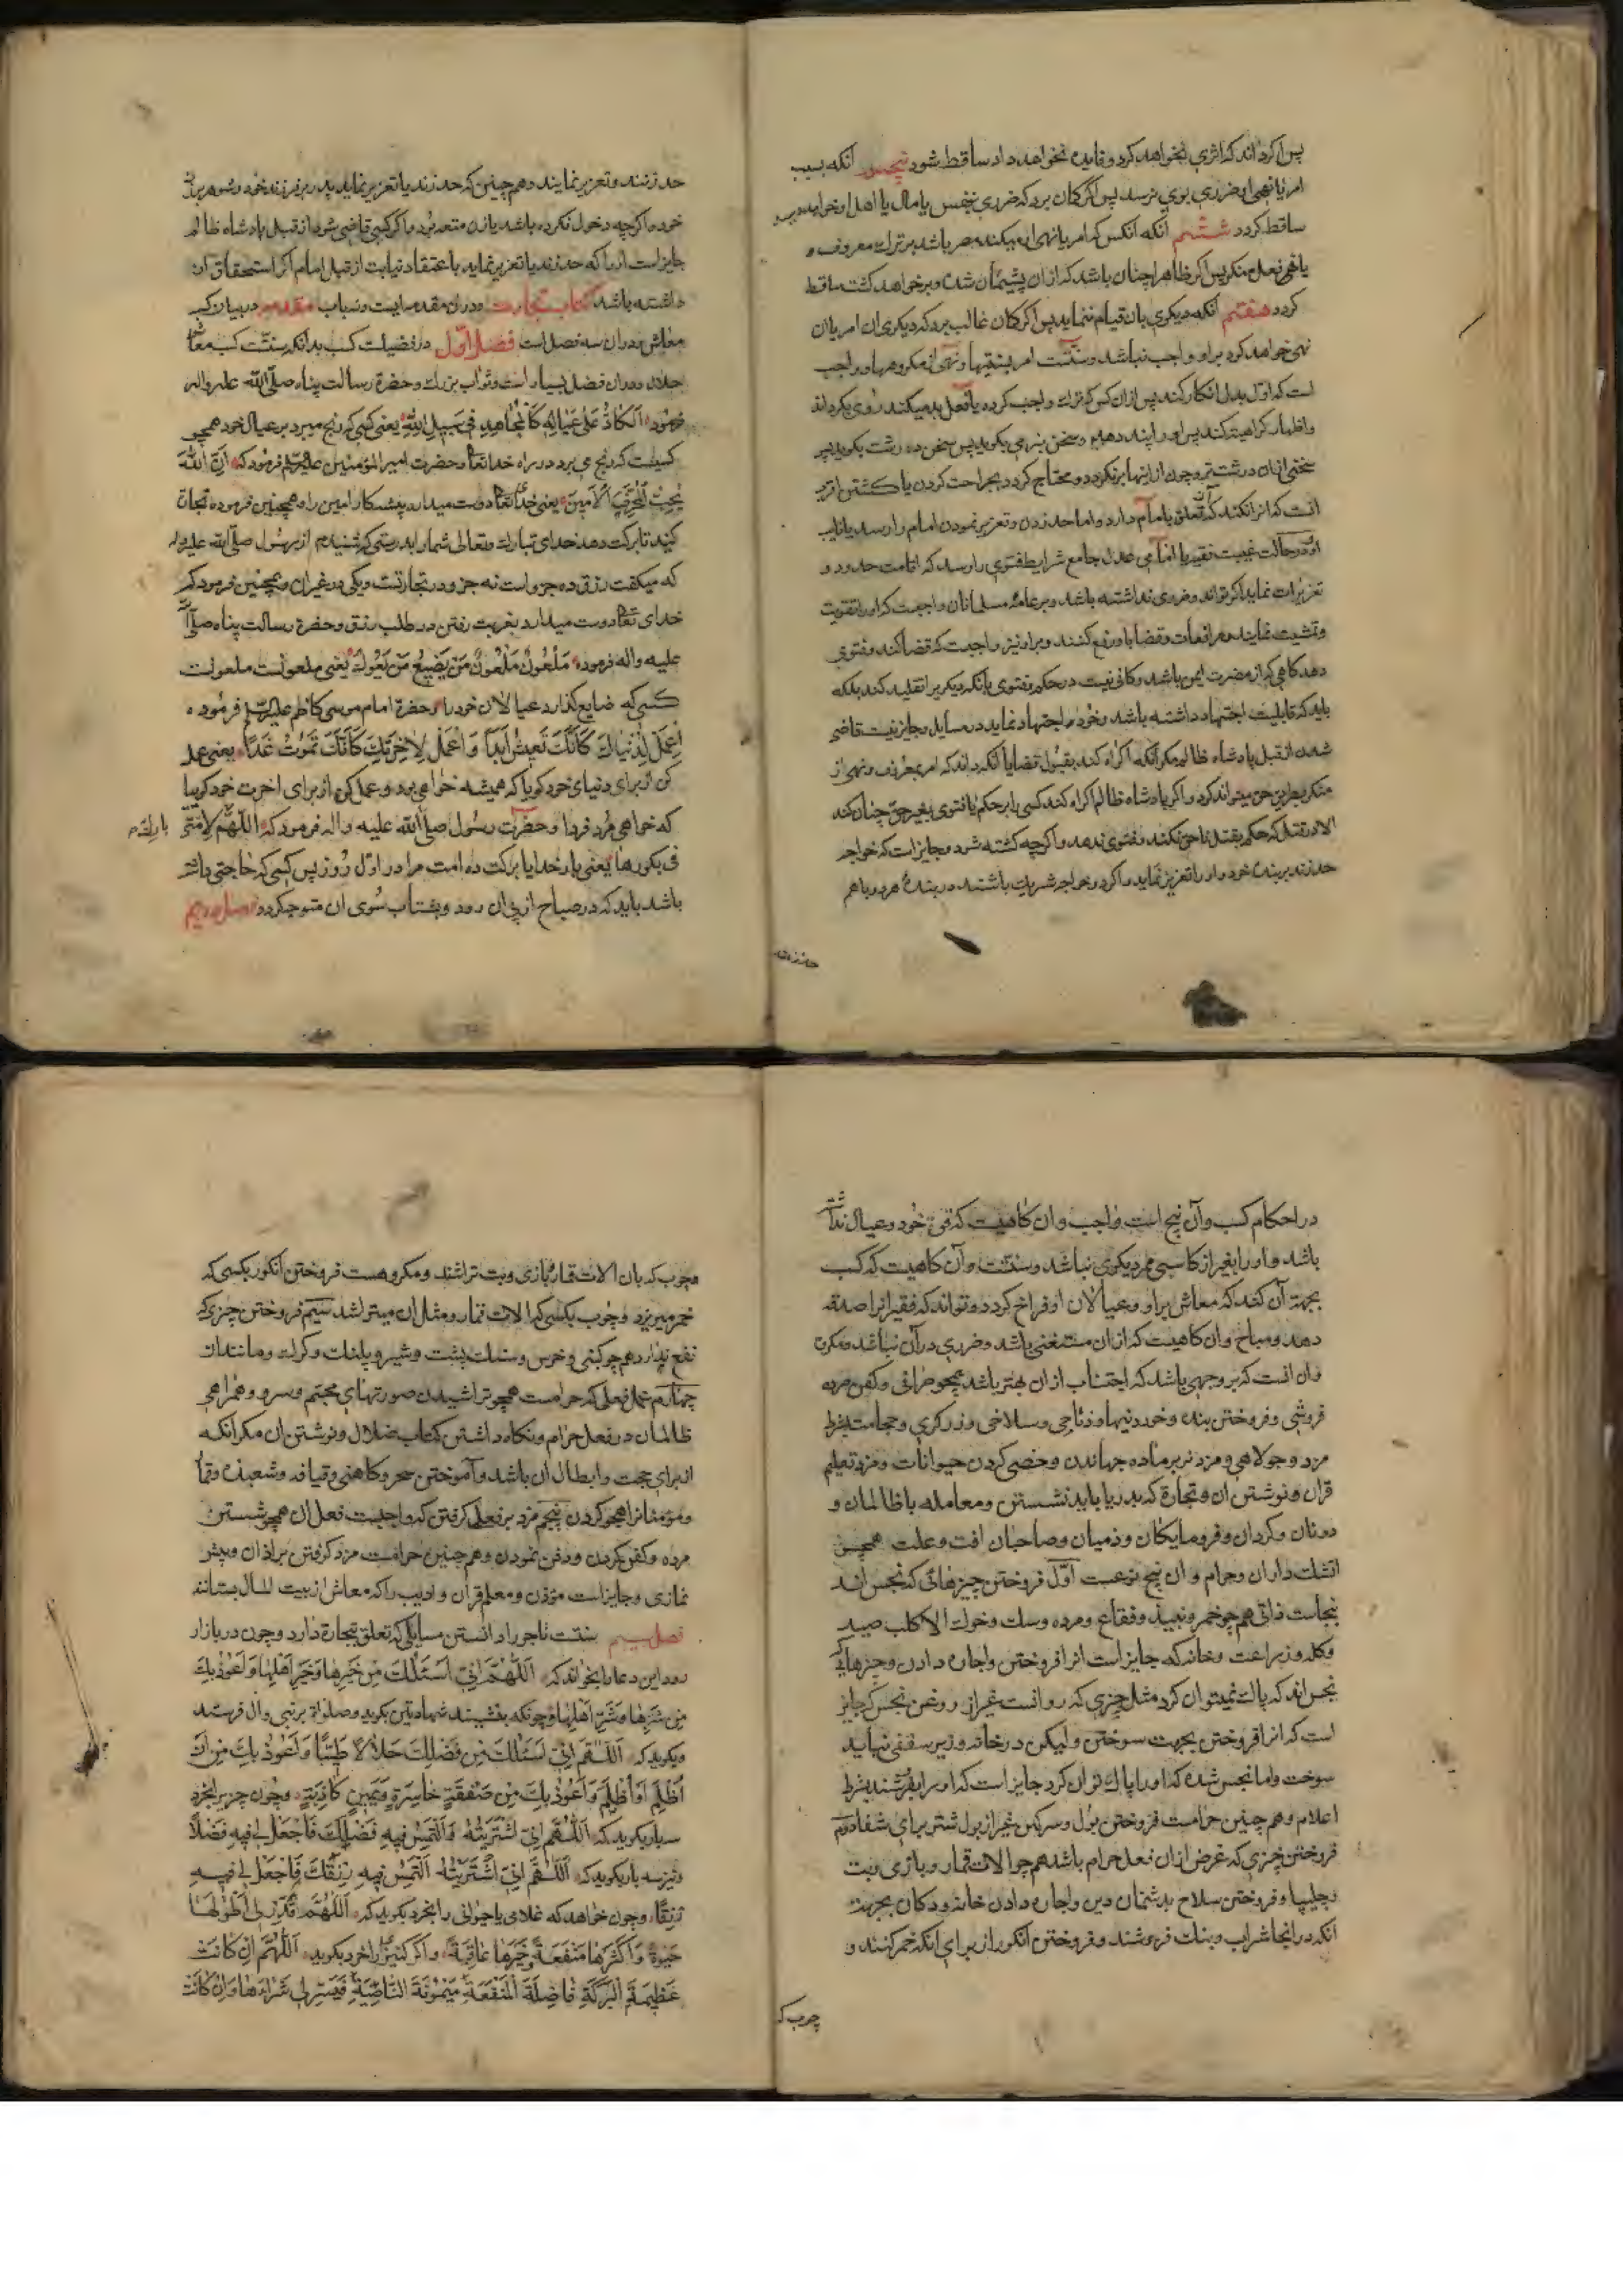 پس اکر داند که اثری نخواهد کرد و فایده نخواهد داد ساقط شود پنجم انکه بسبب
امر یا نهی او ضرری بوی نرسد پس اکر کمان برد که ضرری بنفس یا مال یا اهل او خواهد
ساقط کردد ششم انکه انکس که امر یا نهی او میکند مصر باشد بر ترک معروف و
یا فعل منکر پس اکر ظاهرا چنان باشد که از ان پشیمان شده و بر خواهد کشت ساقط
کردد هفتم انکه دیکری بان قیام ننماید پس اکر کمان غالب برد که دیکری ان امر یا ان
نهی خواهد کرد بر او واجب نباشد و سنت امر بسنتیها و نهی از مکروهها و واجب
است که اول بدل انکار کند پس از ان کس که ترک واجب کرده یا فعل بد میکند روی بکرداند
و اظهار کراهیت کند پس او را پند دهد و سخن بنرمی بکوید پس سخن درشت بکوید پس
سخنی از ان درشت تر و چون از اینها برنکردد و محتاج کردد بجراحت کردن یا کشتن اقرب
انست که انرا نکند که تعلق بامام دارد و اما حد زدن و تعزیر نمودن امام را رسد یا نایب
او و در حالت غیبت فقیه امامی عدل جامع شرایط فتوی را رسد که اقامت حدود و
تعزیرات نماید اکر تواند و ضرری نداشته باشد و بر عامه مسلمانان واجبست که او را تقویت
و تمشیت نمایند و مرافعات و قضایا باو رفع کنند و بر او نیز واجبست که قضا کند و فتوی
دهد کاهی که از مضرت ایمن باشد و کافی نیست در حکم و فتوی بانکه دیکر برا تقلید کند بلکه
باید که قابلیت اجتهاد داشته باشد و خود اجتهاد نماید در مسایل و جایز نیست قاضی
شدن از قبل پادشاه ظالم مکر انکه اکراه کند بقبول قضا یا انکه داند که امر بمعروف و نهی از
منکر بطریق حق میتواند کرد و اکر پادشاه ظالم اکراه کند کسی را بر حکم یا فتوی بغیر حق چنان کند
الا در قتل که حکم بقتل ناحق نکند و فتوی ندهد و اکرچه کشته شود و جایز است که خواجه
حد زند بر بنده خود و او را تعزیر نماید و اکر دو خواجه شریک باشند در بنده هر دو با هم
حد زنند
حد زنند و تعزیر نمایند و هم چنین که حد زند یا تعزیر نماید پدر بر فرزند خود و شوهر بر زن
خود و اکرچه دخول نکرده باشد یا زن متعه بود و اکر کسی قاضی شود از قبل پادشاه ظالم
جایز است او را که حد زند یا تعزیر نماید باعتقاد نیابت از قبل امام اکر استحقاق ان
داشته باشد کتاب تجارت و در ان مقدمه ایست و نه باب مقدمه در بیان کسب
معاش و در ان سه فصل است فصل اول در فضیلت کسب بدانکه سنتست کسب معاش
حلال و در ان فضل بسیار است و ثواب بزرک و حضرة رسالت پناه صلی الله علیه واله
فرموده الکاد علی عیاله کالمجاهد فی سبیل الله یعنی کسی که رنج میبرد بر عیال خود همچو
کسیست که رنج می برد در راه خدایتعالی و حضرت امیر المؤمنین علیه السلم فرموده که ان الله
یحب المحترف الامین یعنی خدایتعالی دوست میدارد پیشه کار امین را و همچنین فرموده تجارت
کنید تا برکت دهد خدای تبارک و تعالی شما را بدرستی که شنیدم از رسول صلی الله علیه واله
که میکفت رزق ده جزو است نه جزو در تجارتست و یکی در غیر ان و همچنین فرمود که
خدای تعالی دوست میدارد بغربت رفتن در طلب رزق و حضرة رسالت پناه صلی الله
علیه واله فرموده ملعون ملعون من یضیع من یعول یعنی ملعونست ملعونست
کسی که ضایع کذارد عیالان خود را و حضرة امام موسی کاظم علیه السلم فرموده
اعمل لدنیاک کانک تعیش ابدا و اعمل لاخرتک کانک تموت غدا یعنی عمل
کن از برای دنیای خود کویا که همیشه خواهی بود و عمل کن از برای اخرت خود کویا
که خواهی مرد فردا و حضرت رسول صلی الله علیه واله فرمود که اللهم لامتی
بارک
فی بکورها یعنی بار خدایا برکت ده امت مرا در اول روز پس کسی که حاجتی داشته
باشد باید که در صباح از پی ان رود و بشتاب سوی ان متوجه کردد فصل دویم
در احکام کسب و آن پنج است واجب و ان کاهیست که قوة خود و عیال نداشته
باشد و او را بغیر از کاسبی ممر دیکری نباشد و سنت و آن کاهیست که کسب
بجهة آن کند که معاش بر او و عیالان او فراخ کردد و تواند که فقیرانرا صدقه
دهد و مباح و ان کاهیست که از ان مستغنی باشد و ضرری در آن نباشد و مکروه
و ان انست که بر وجهی باشد که اجتناب از ان بهتر باشد همچو صرافی و کفن مرده
فروشی و فروختن بنده و خوردنیها و ذباحی و سلاخی و زرکری و حجامت بشرط
مزد و جولاهی و مزد نر بر ماده جهاندن و خصی کردن حیوانات و مزد تعلیم
قران و نوشتن ان و تجارة که بدریا باید نشستن و معامله با ظالمان و
دونان و کردان و فرومایکان و ذمیان و صاحبان افت و علت همچین
اتشک داران و حرام و ان پنج نوعست اول فروختن چیزهائی که نجس اند
بنجاست ذاتی هم چو خمر و نبیذ و فقاع و مرده و سک و خوک الا کلب صید
و کله و زراعت و خانه که جایز است انرا فروختن و اجاره دادن و چیزهائی
نجس اند که پاک نمیتوان کرد مثل چیزی که روانست غیر از روغن نجس که جایز
است که انرا فروختن بجهت سوختن و لیکن در خانه و زیر سقفی نباید
سوخت و اما نجس شده که او را پاک توان کرد جایز است که او را بفروشند بشرط
اعلام و هم چنین حرامست فروختن بول و سرکین غیر از بول شتر برای شفا دویم
فروختن چیزی که غرض از ان فعل حرام باشد هم چو الات قمار و بازی و بت
و چلیپا و فروختن سلاح بدشمنان دین و اجاره دادن خانه و دکان بجهة
انکه در انجا شراب و بنک فروشند و فروختن انکور از برای انکه خمر کنند و
چوب که
چوب که بان الات قمار بازی و بت تراشند و مکروهست فروختن انکور بکسی که
خمر میریزد و چوب بکسی که الات قمار و مثل ان میتراشد سیم فروختن چیزی که
نفع ندارد هم چو کپی و خرس و سنک پشت و شیر و پلنک و کربه و مانند ان
چهارم عمل فعلی که حرامست همچو تراشیدن صورتهای مجسم و سرود و همراهی
ظالمان در فعل حرام و نکاه داشتن کتاب ضلال و نوشتن ان مکر انکه
از برای حجت و ابطال ان باشد و آموختن سحر و کاهنی و قیافه و شعبذه و قمار
و مؤمنانرا هجو کردن پنجم مزد بر فعلی کرفتن که واجبست فعل ان همچو شستن
مرده و کفن کردن و دفن نمودن و هم چنین حرامست مزد کرفتن بر اذان و پیش
نمازی و جایز است مؤذن و معلم قران و ادیب را که معاش از بیت المال بستانند
فصل سیم سنتست تاجر را دانستن مسایلی که تعلق بتجارة دارد و چون در بازار
رود این دعا را بخواند که اللهم انی اسئلک من خیرها و خیر اهلها و اعوذ بک
من شرها و شر اهلها و چونکه بنشیند شهادتین بکوید و صلواة بر نبی و ال فرستد
و بکوید که اللهم انی اسئلک من فضلک حلالا طیبا و اعوذ بک من ان
اظلم او اظلم و اعوذ بک من صفقة خاسرة و یمین کاذبة و چون چیزی بخرد
سه بار بکوید که اللهم انی اشتریته والتمس فیه فضلک فاجعل لی فیه فضلا
و نیز سه بار بکوید که اللهم انی اشتریته التمس فیه رزقک فاجعل لی فیه
رزقا و چون خواهد که غلامی یا حیوانی را بخرد بکوید که اللهم قدر لی اطولها
حیوة و اکثرها منفعة و خیرها عاقبة و اکر کنیز را خرد بکوید اللهم ان کانت
عظیمة البرکة فاضلة المنفعة میمونة الناصیة فیسر لی شراءها و ان کانت